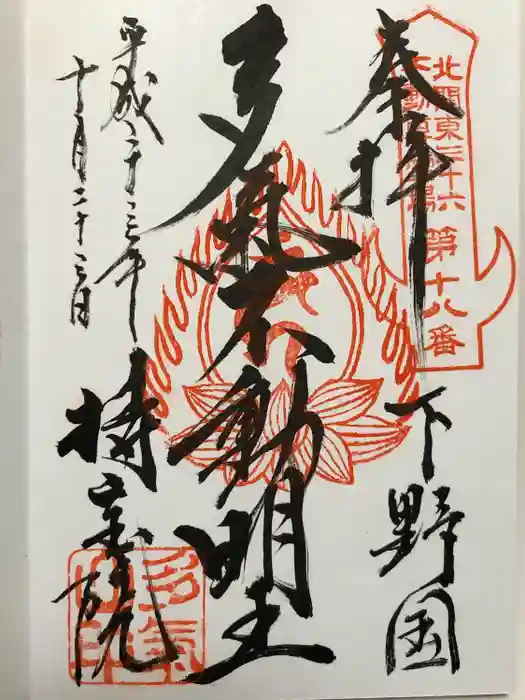 奉拝
北関東三十六
不動尊霊場
第十八番
下野国
多氣不動明王
平成二十三年
十一月二十三日
持宝院